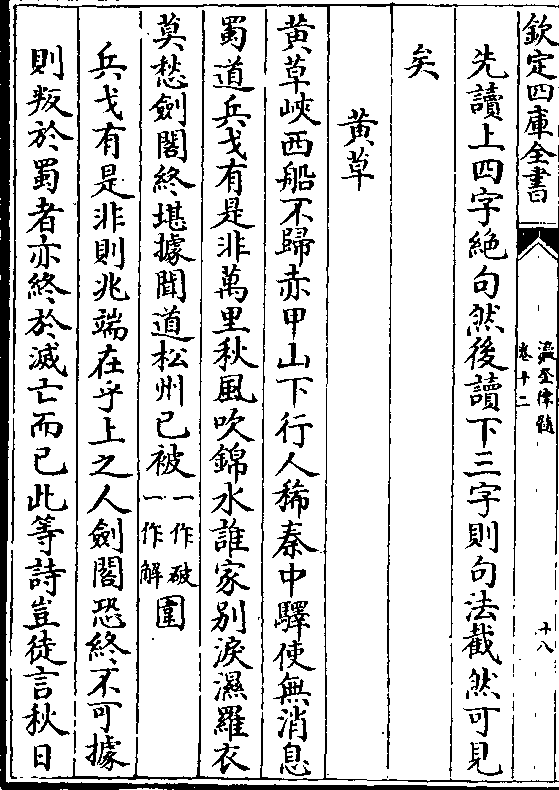 欽定四庫全書
瀛奎律髓
卷十二
十八
先讀上四字絶句然後讀下三字則句法截然可見
矣
黄草
黄草峽西船不歸赤甲山下行人稀秦中驛使無消息
蜀道兵戈有是非萬里秋風吹錦水誰家別淚濕羅衣
莫愁劍閣終堪據聞道松州已被一作破一作解圍
兵戈有是非則兆端在乎上之人劍閣恐終不可據
則叛於蜀者亦終於滅亡而已此等詩豈徒言秋日